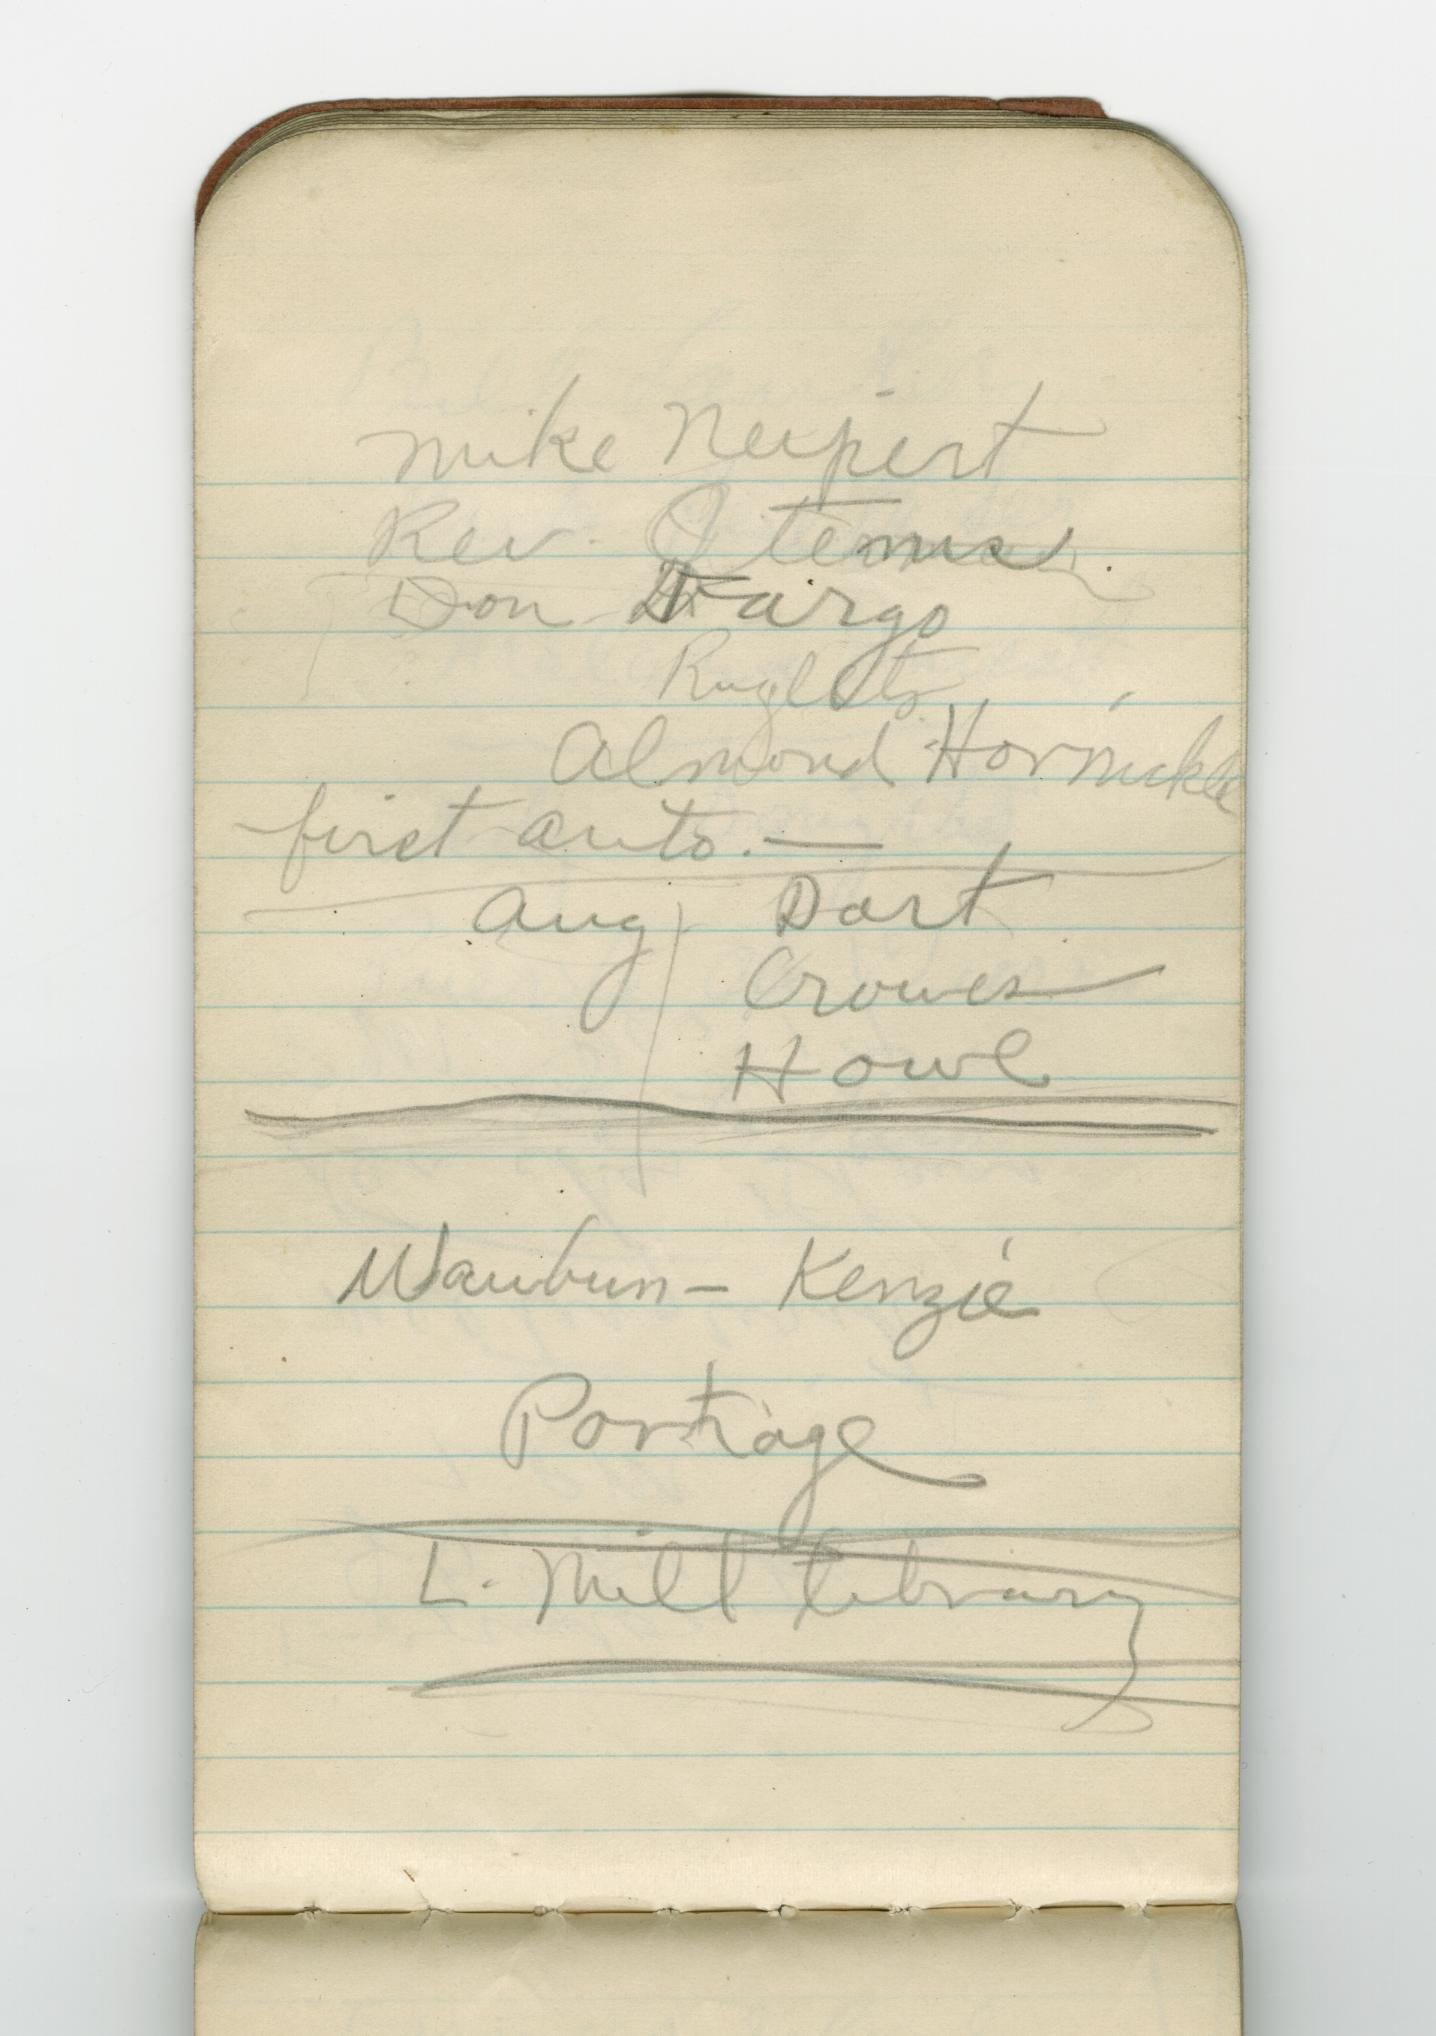 Mike Neipert
Rev.
Don Fargo
Almond Hornickle
first auto. —
Aug Dart
Crowes
Howl
Waubun — Kenzie
Portage
L. Mill library